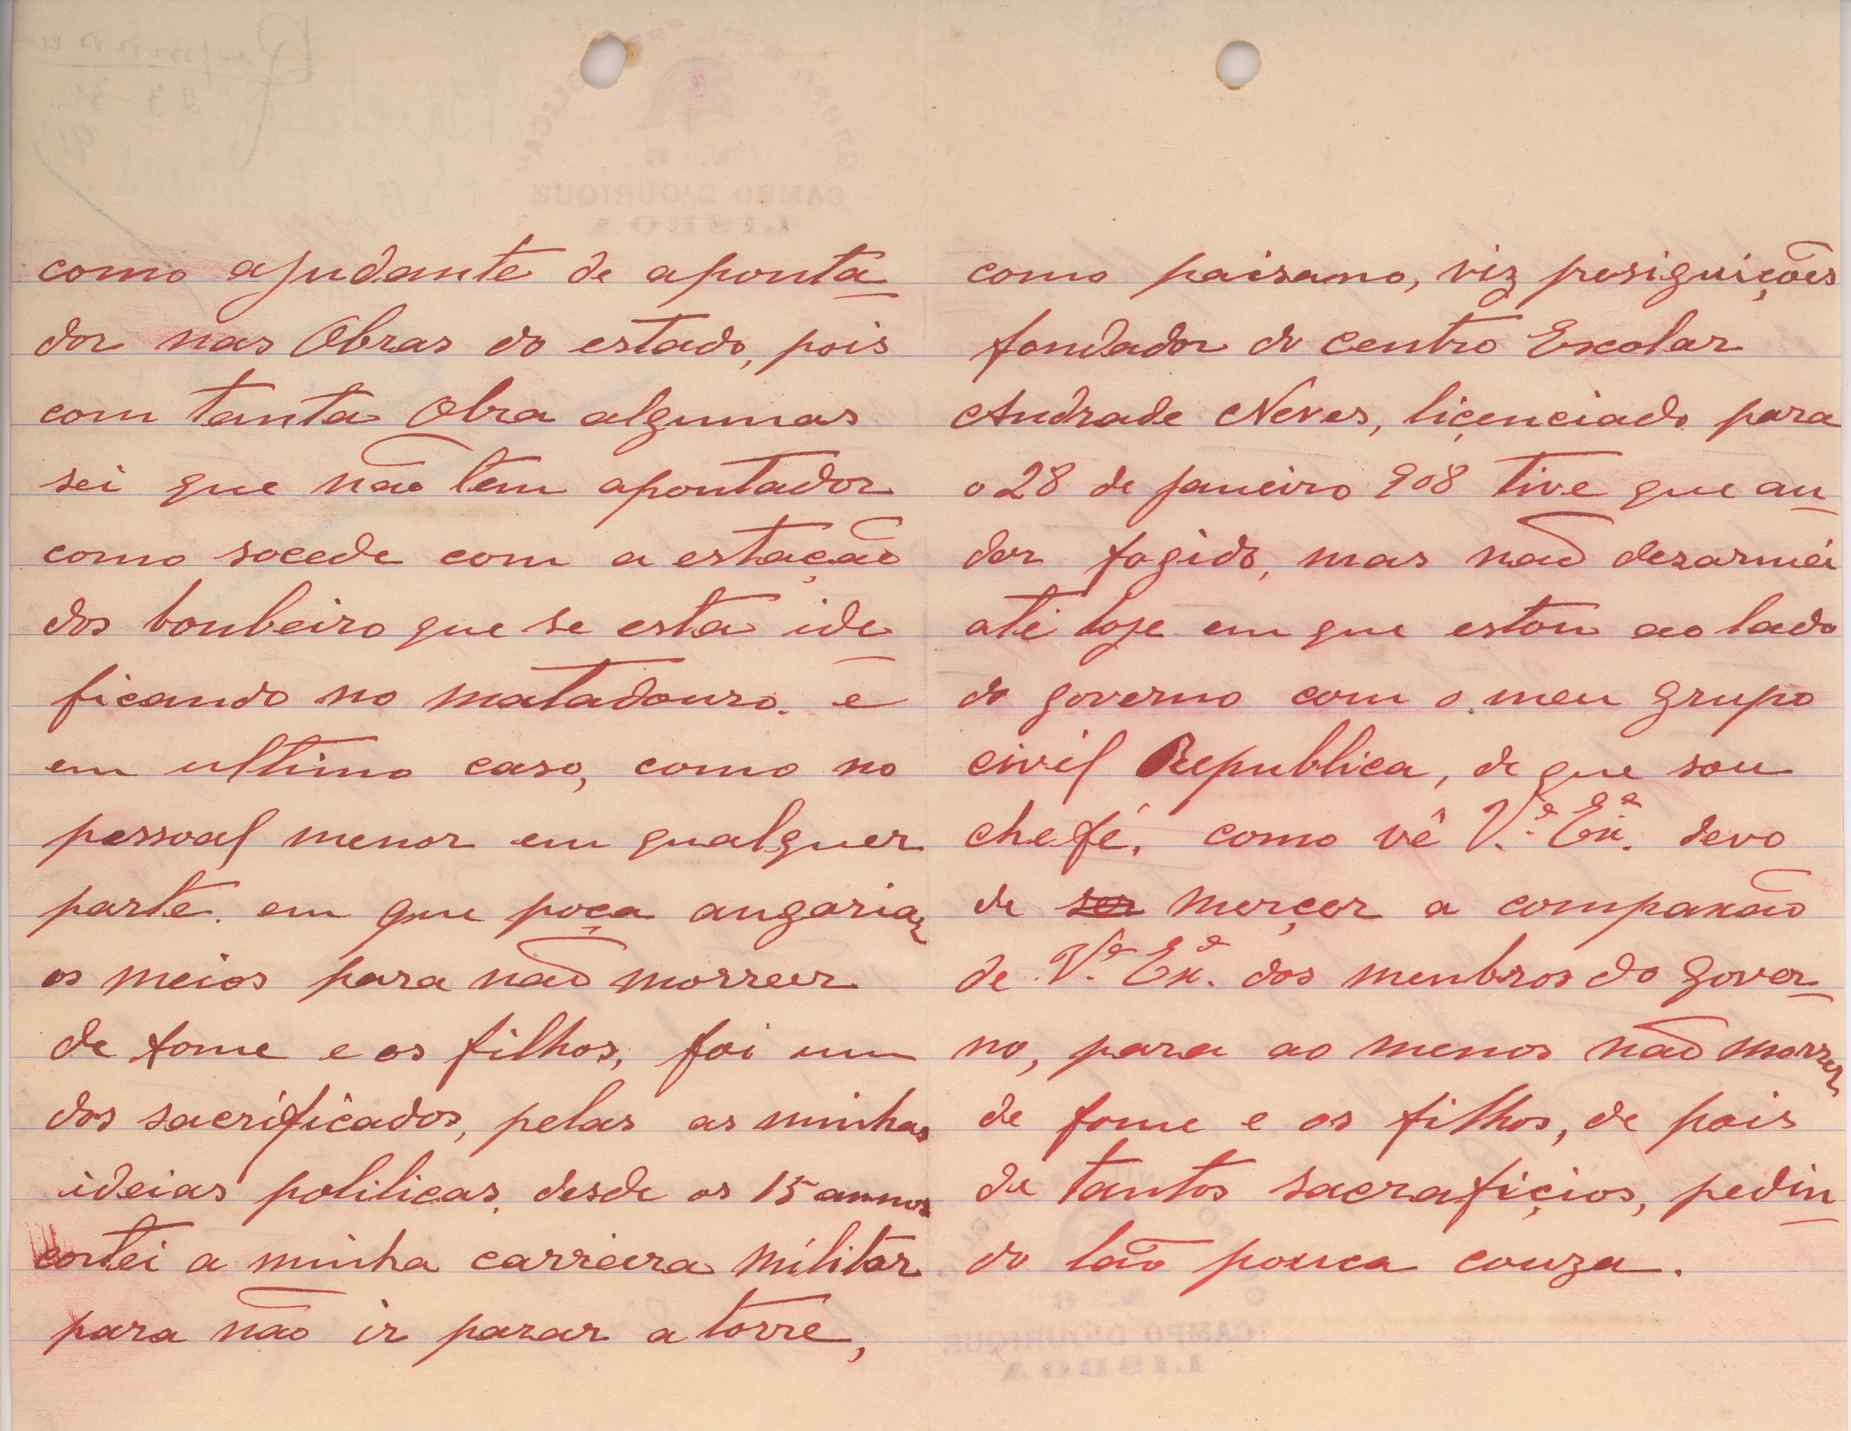 como ajudante de aponta
dor nas Obras do estado, pois
com tanta Obra algumas
sei que não tem apontador
como socede com a estação
dos bonbeiro que se esta ide
ficando no matadouro. e
em ultimo caso, como no
pessoal menor em qualquer
parte. em que poça angariar
os meios para não morreer
de fome e os filhos, foi um
dos sacrificados, pelas as minhas
ideias politicas, desde os 15 annos
cortei a minha carrieira militar
para não ir parar a torre,
como paisano, viz
fondador do centro Escolar
Andrade Neves, liçenciado para
o 28 de janeiro 908 tive que an
dar fogido, mas não dezarmei
até hoje em que estou ao lado
do governo com o meu grupo
civil Republica, de que sou
chefé, como vê V.ª Ex.ª devo
de ser merçer a compaxão
de V.ª Ex.ª dos menbros do Gover
no, para ao menos não morrer
de fome e os filhos, de pois
de tantos sacrafiçios, pedin
do tão pouca couza.
CAMPO D'OURIQUE
LISBOA